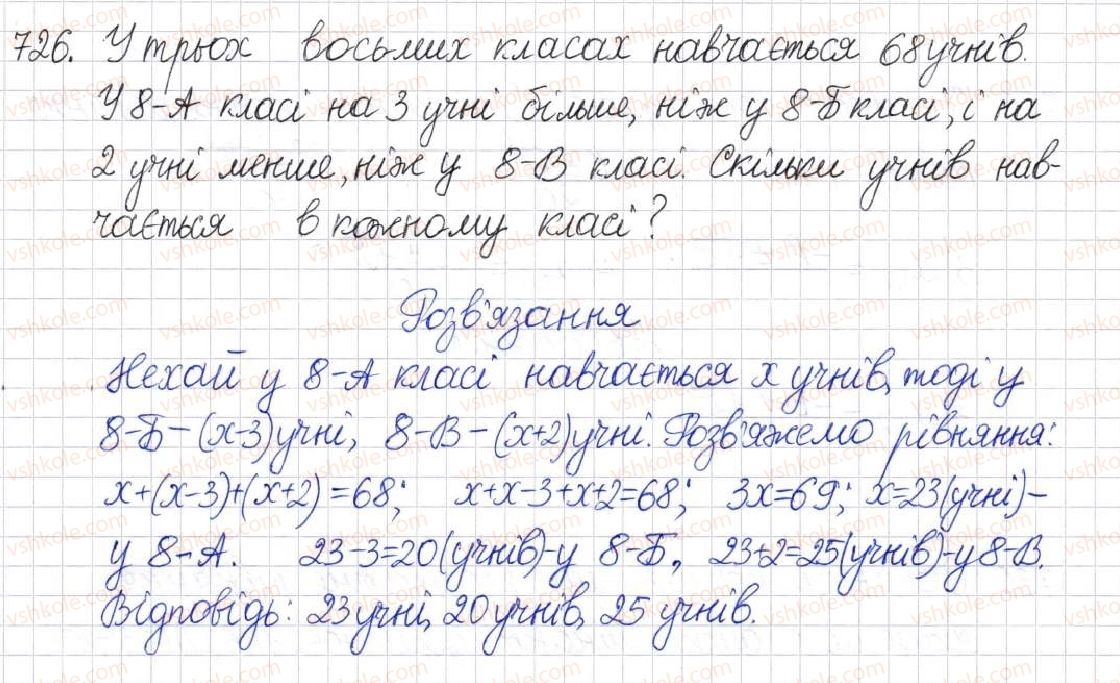 726. У трьох восьмих класах навчається 68 учнів.
У 8-А класі на 3 учні більше, ніж у 8-Б класі, і на
2 учні менше, ніж у 8-В класі. Скільки учнів нав-
чається в кожному класі?
Розв'язання
Нехай у 8-А класі навчається х учнів, тоді у
8-Б - (х-3) учні, 8-В - (х+2) учні. Розв'яжемо рівняння:
х+(х-3)+(х+2)=68; х+х-3+х+2=68; 3х=69; х=23 (учні) -
у 8-А. 23-3=20 (учнів) - у 8-Б, 23+2=25 (учнів) - у 8-В.
Відповідь: 23 учні, 20 учнів, 25 учнів.